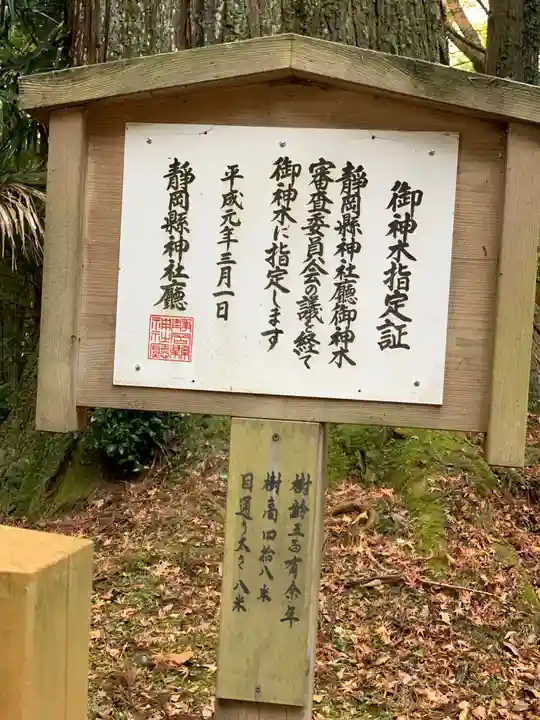 御神水指定証
静岡縣神社廳御神水
審査委員会の議を経て
御神水に指定します
平成元年三月一日
静岡縣神社廳
樹齢五百有余年
樹高四拾八米
目通り太さ八米